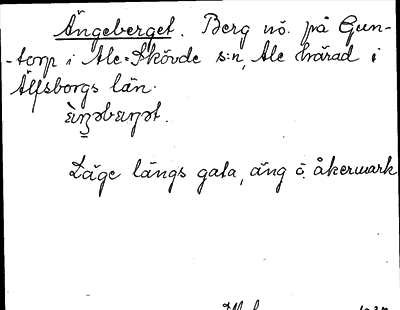 Ängeberget. Berg nö. på Gun-
-torp i Ale-Skövde s:n, Ale härad i
Älfsborgs län.
Läge längs gata, äng o. åkermark